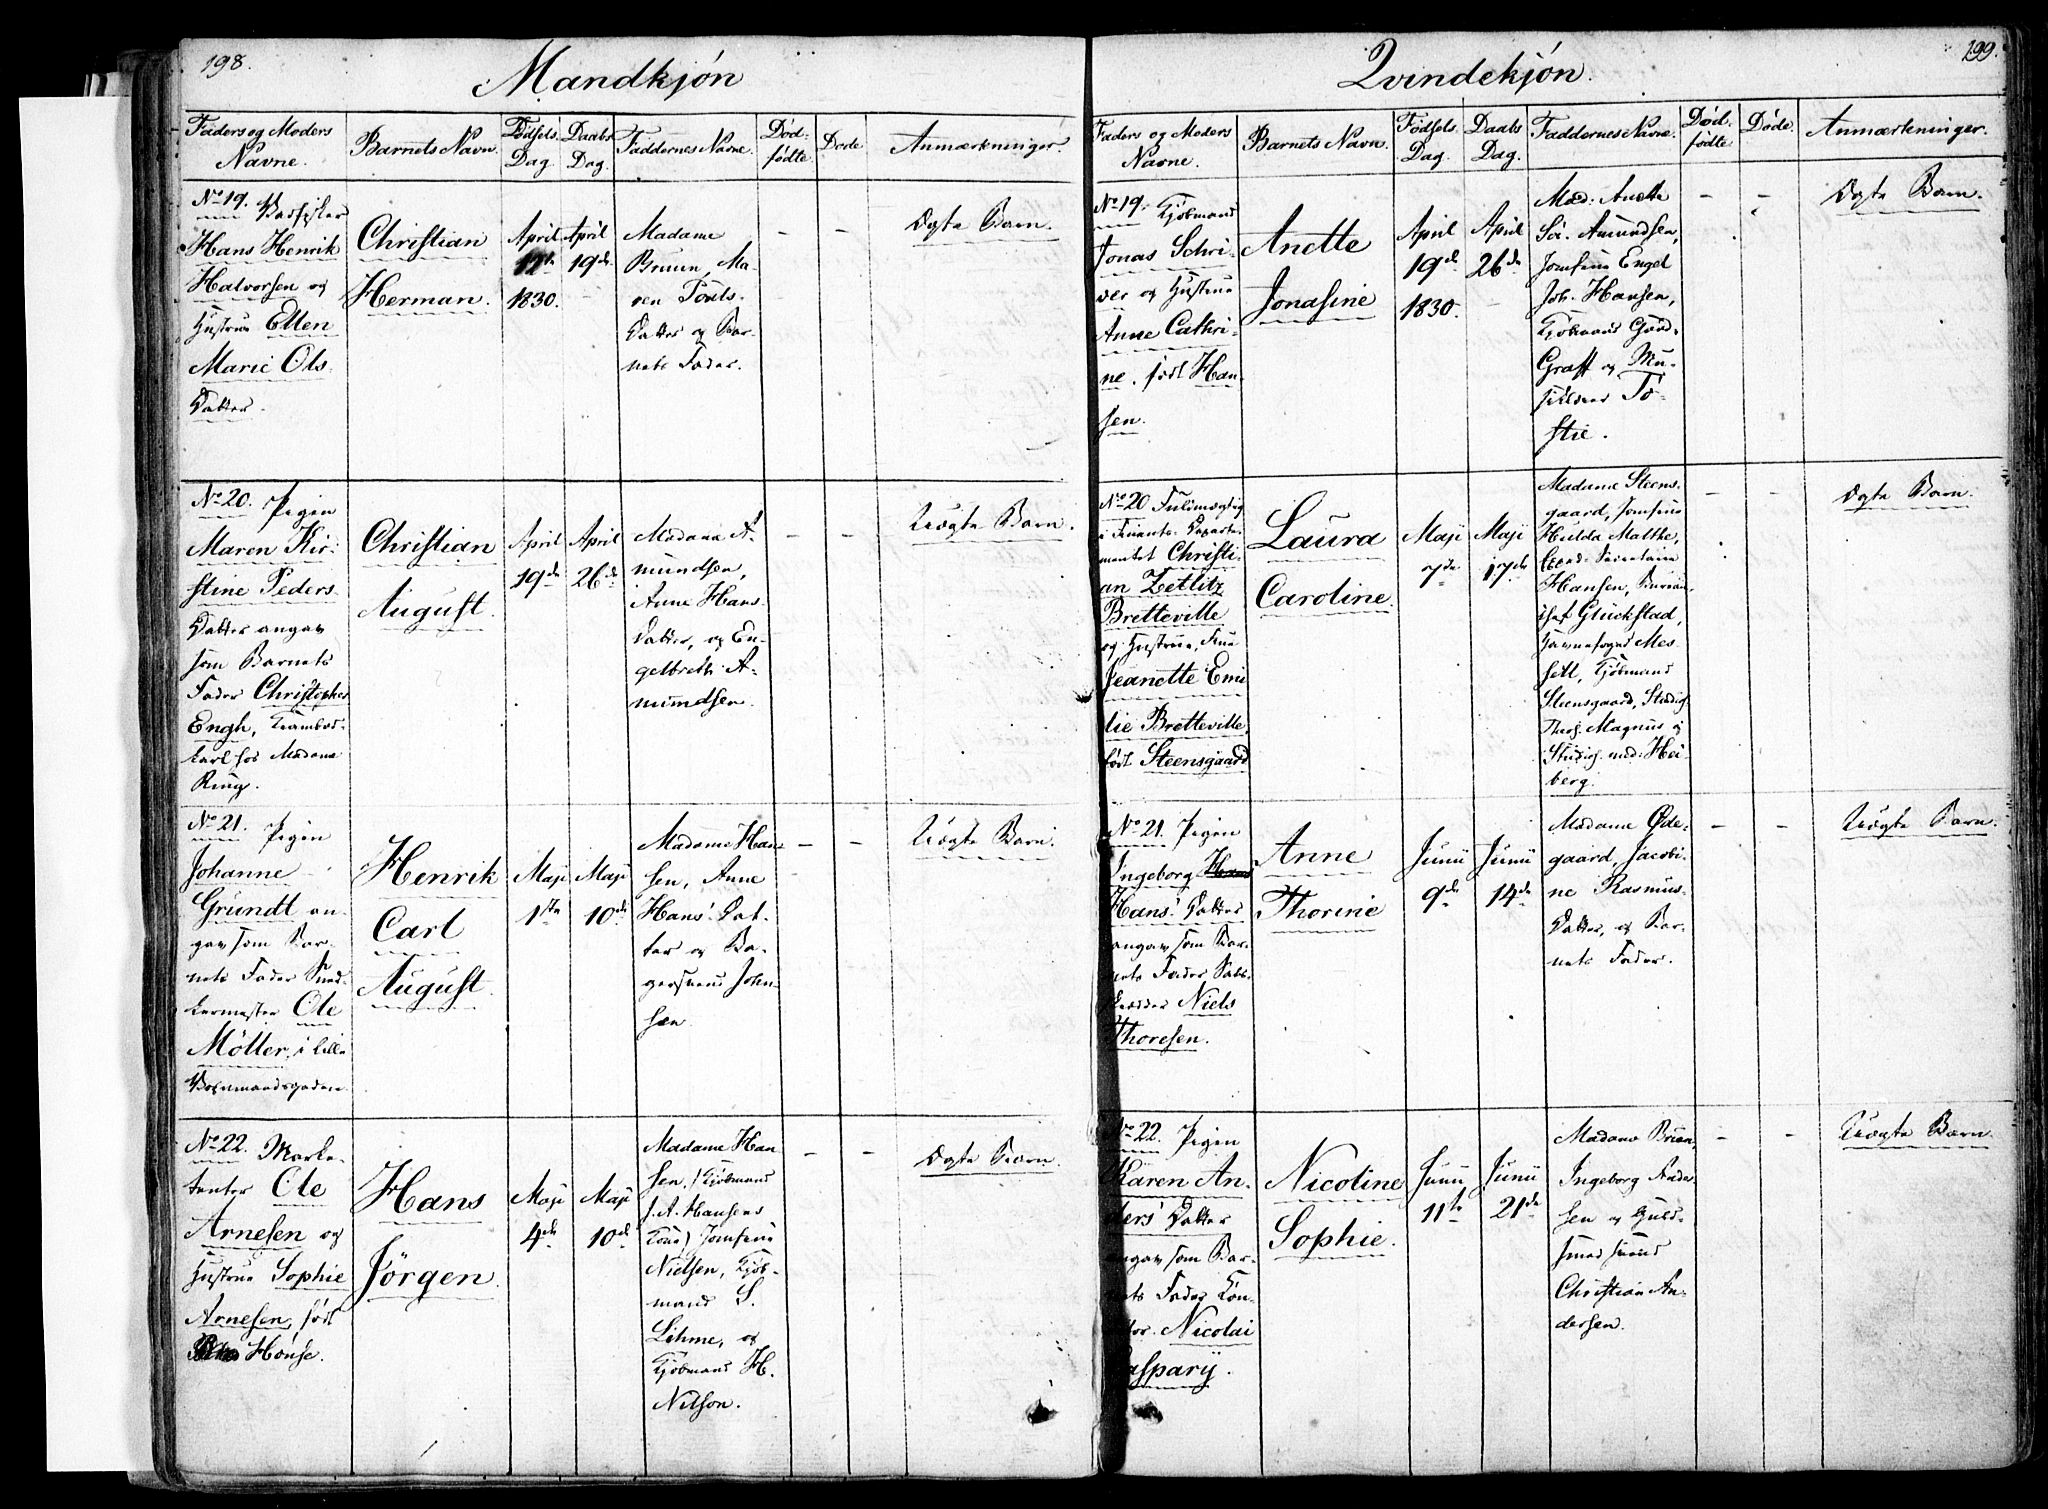 198.
Mandkjön
Faders og Moders
Navne.
Barnets Navn.
Födsels
Dag.
Daabs
Dag.
Faddernes Navne.
Död-
födte
Döde
Anmærkninger.
No 19.
Hans Henrik
Halvorsen og
Hustrue Ellen
Marie Ols
Datter.
Christian
Herman.
April
12te
1830.
April
19de
Madame
Bruun, Ma-
ren Pouls-
Datter og Bar-
nets Fader.
Ægte Barn.
No 20. Pigen
Maren Kir-
stine Peders-
Datter angav
som Barnets
Fader Christopher
Engh, Krambod-
karl hos Madame
Ring.
Christian
August.
April
19de
April
26de
Madame A-
mundsen,
Anne Hans-
Datter, og En-
gelbreth A-
mundsen.
Uægte Barn.
No 21. Pigen
Johanne
Grundt an-
gav som Bar-
nets Fader Sned-
kermester Ole
Möller, i Lille
Henrik
Carl
August.
Maji
1ste
Maji
10de
Madame Han-
sen, Anne
Hans' Dat-
ter og Ba-
gersvend John-
sen.
Uægte Barn.
No 22. Marke-
tenter Ole
Arnesen og
Hustrue Sophie
Arnesen, född
Hönse.
Hans
Jörgen.
Maji
4de
Maji
10de
Madame Han-
sen, (Kjöbmand
J. A. Hansens
Kone) Jomfrue
Nielsen, Kjöb-
mand S.
Lihme, og
Kjöbmand H.
Nilson.
Ægte Barn.
199.
Qvindekjön.
Faders og Moders
Navne.
Barnets Navn.
Födsels
Dag.
Daabs
Dag.
Faddernes Navne.
Död-
födte
Döde.
Anmærkninger.
No 19. Kjöbmand
Jonas Schri-
ver og Hustrue
Anne Cathri-
ne, född Han-
sen.
Anette
Jonasine
April
19de
1830.
April
26de
Mad: Anette
Amundsen,
Jomfrue Engel
Joh. Hansen,
Kjöbmand
Graff og Mu-
To-
stie.
Ægte Barn.
No 20 Fuldmægtig
i Finants-Departe-
mentet Christi-
an Zetlitz
Bretteville
og Hustrue, Frue
Jeanette Emi
lie Bretteville,
född Steensgaard
Laura
Caroline.
Maji
7de
Maji
17de
Madame Steens-
gaard, Jomfrue
Hulda Malthe,
Hansen, Bureau-
chef Glückstad,
Mes-
sell, Kjöbmand
Steensgaard, Studios.
Theol. Magnus og
Studios. med: Hei-
berg.
Ægte Barn.
No 21. Pigen
Ingeborg
Hans' Datter
angav som Bar-
nets Fader
Niels
Thoresen.
Anne
Thorine
Junii
9de
Junii
14de
Madame Øde-
gaard, Jacobi-
ne Rasmus-
Datter, og Bar-
nets Fader.
Uægte Barn.
No 22. Pigen
Karen An-
ders' Datter
angav som Bar-
nets Fader
Nicolai
Caspary.
Nicoline
Sophie.
Junii
11te
Junii
21de
Madame Bruun,
Ingeborg Ander-
sen og Guld-
smed svend
Christian An-
dersen.
Uægte Barn.